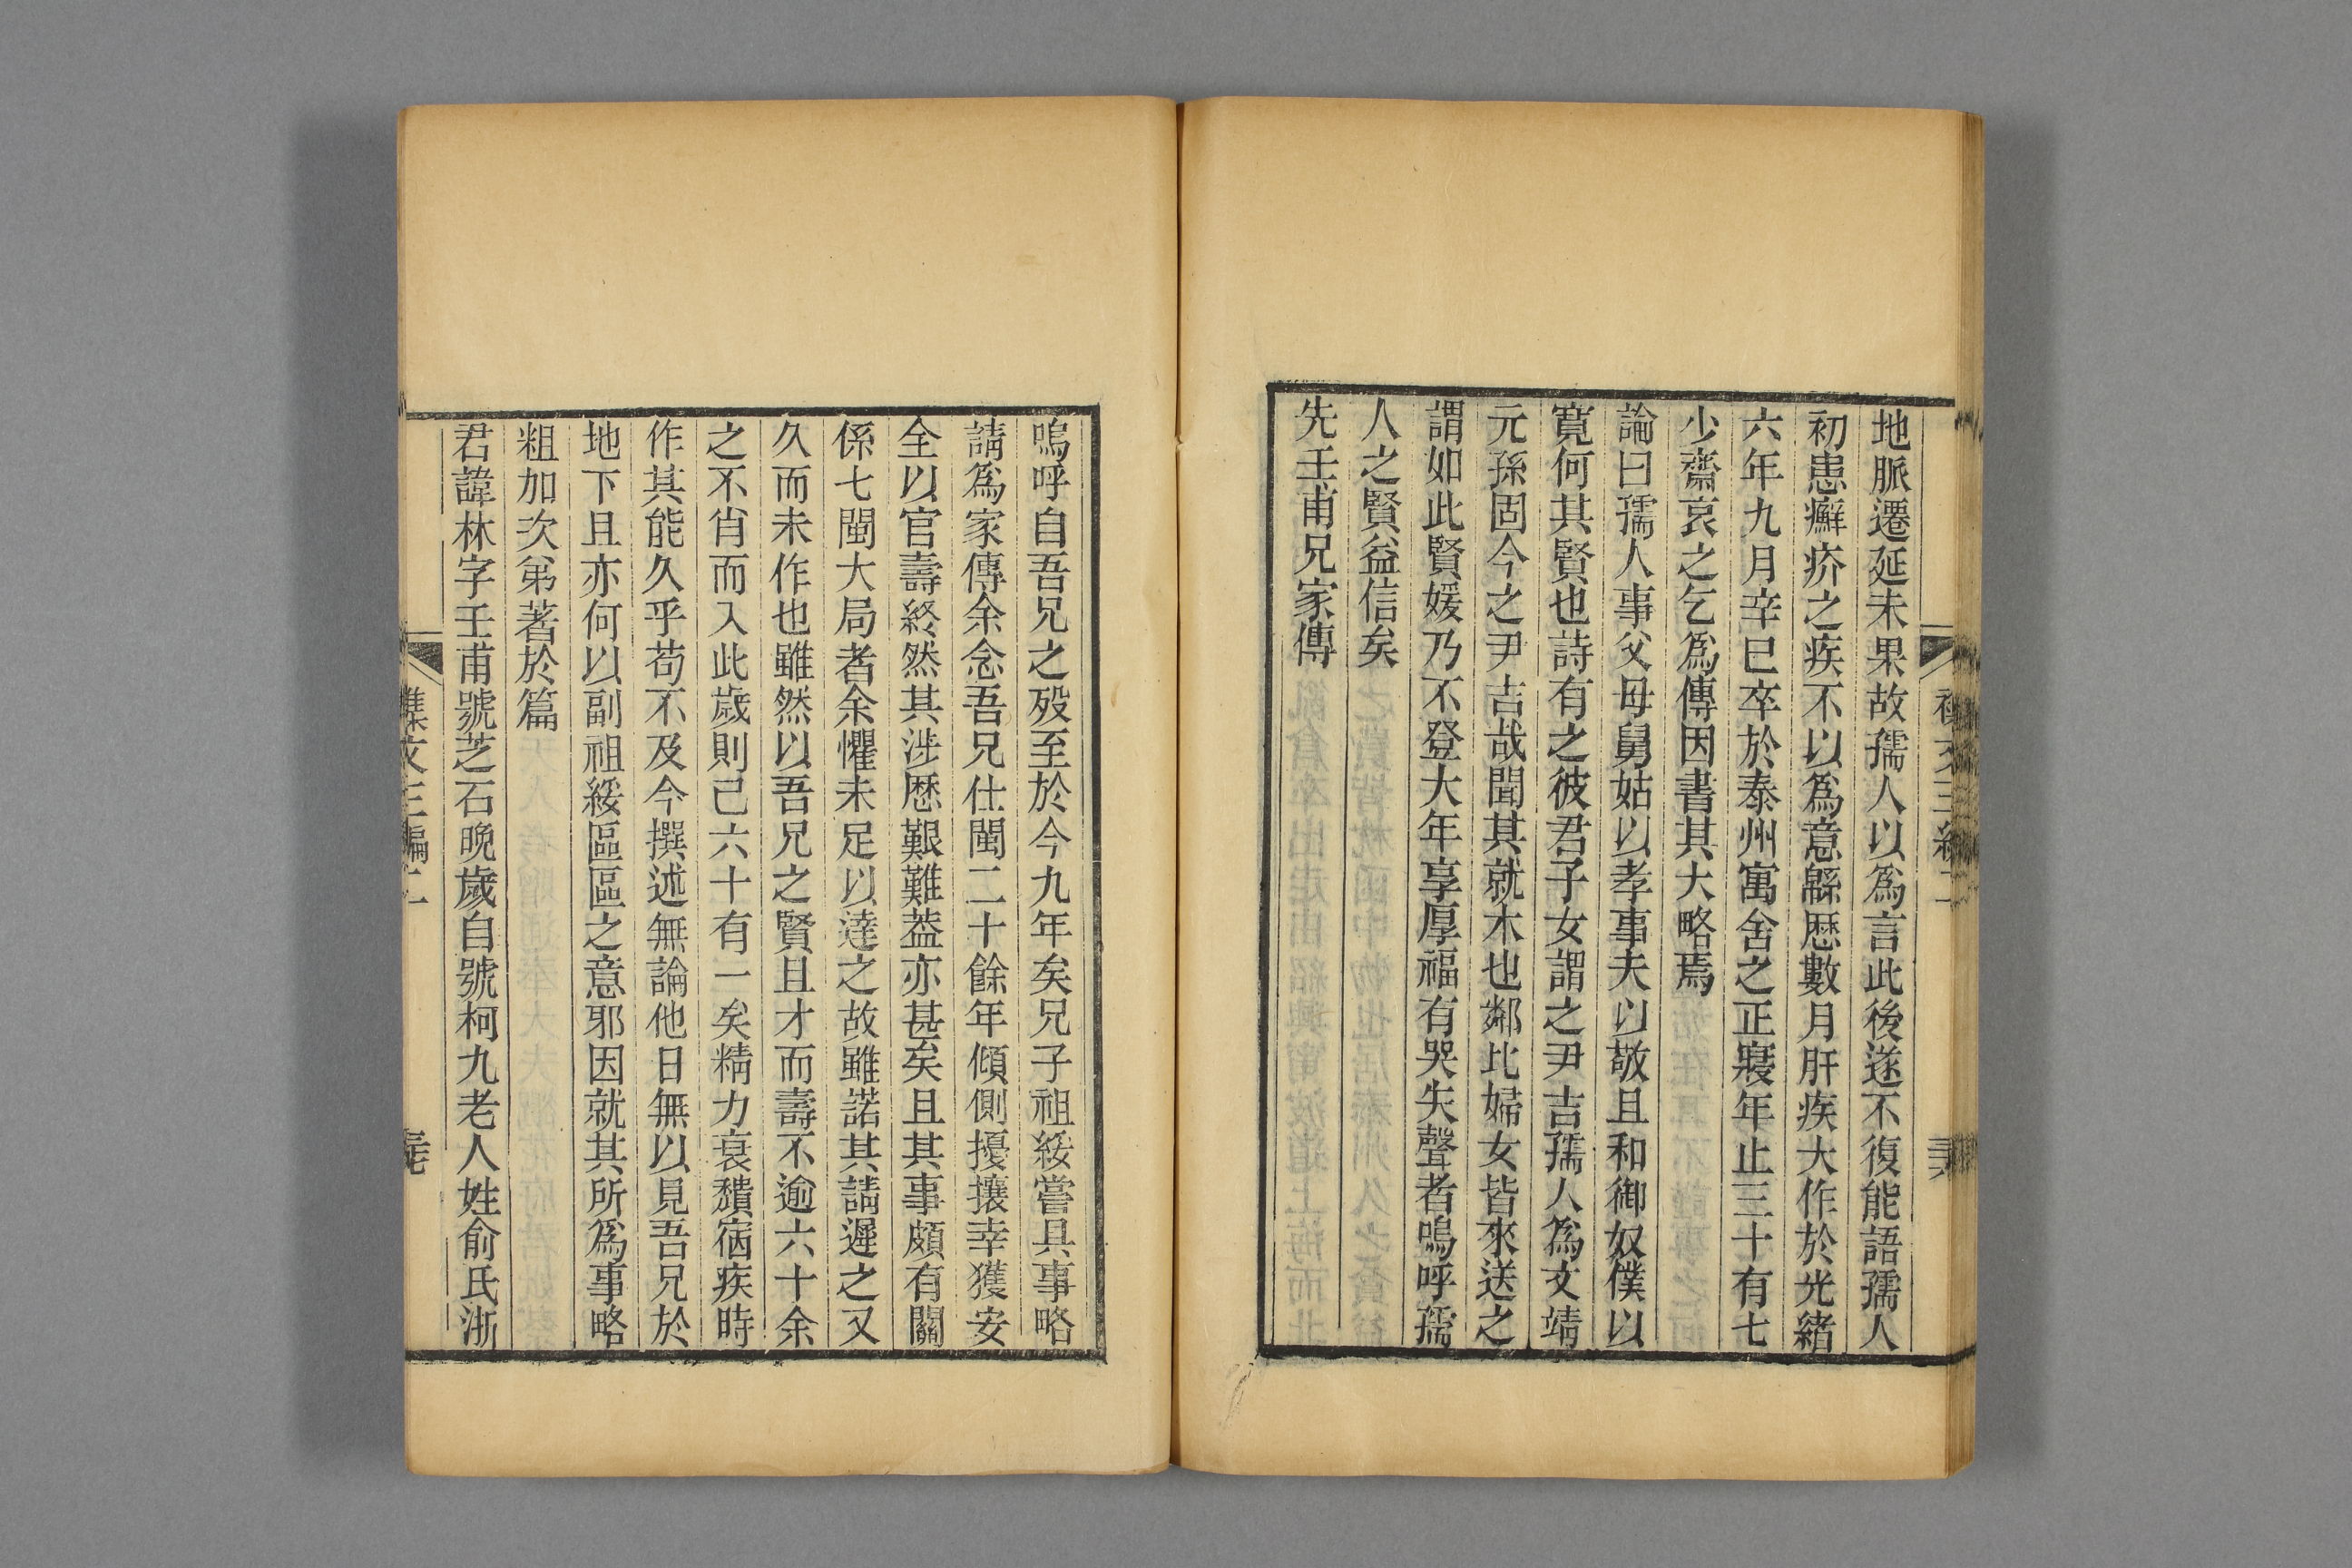 地脈遷延未果故孺人以爲言此後遂不復能語孺人
初患癬疥之疾不以爲意緜歷數月肝疾大作於光緒
六年九月辛巳卒於泰州寓舍之正寢年止三十有七
少齋哀之乞爲傳因書其大略焉
論曰孺人事父母舅姑以孝事夫以敬且和御奴僕以
寬何其賢也詩有之彼君子女謂之尹吉孺人爲文靖
元孫固今之尹吉哉聞其就木也鄰比婦女皆來送之
謂如此賢媛乃不登大年享厚福有哭失聲者嗚呼孺
人之賢益信矣
先壬甫兄家傳
嗚呼自吾兄之歿至於今九年矣兄子祖綏嘗具事略
請爲家傳余念吾兄仕閩二十餘年傾側擾攘幸獲安
全以官壽終然其涉歷艱難葢亦甚矣且其事頗有關
係七閩大局者余懼未足以達之故雖諾其請遲之又
久而未作也雖然以吾兄之賢且才而壽不逾六十余
之不肖而入此歲則己六十有一矣精力衰穨宿疾時
作其能久乎苟不及今撰述無論他日無以見吾兄於
地下且亦何以副祖綏區區之意邪因就其所爲事略
粗加次弟著於篇
君諱林字壬甫號芝石晚歲自號柯九老人姓俞氏浙
雜文三編二